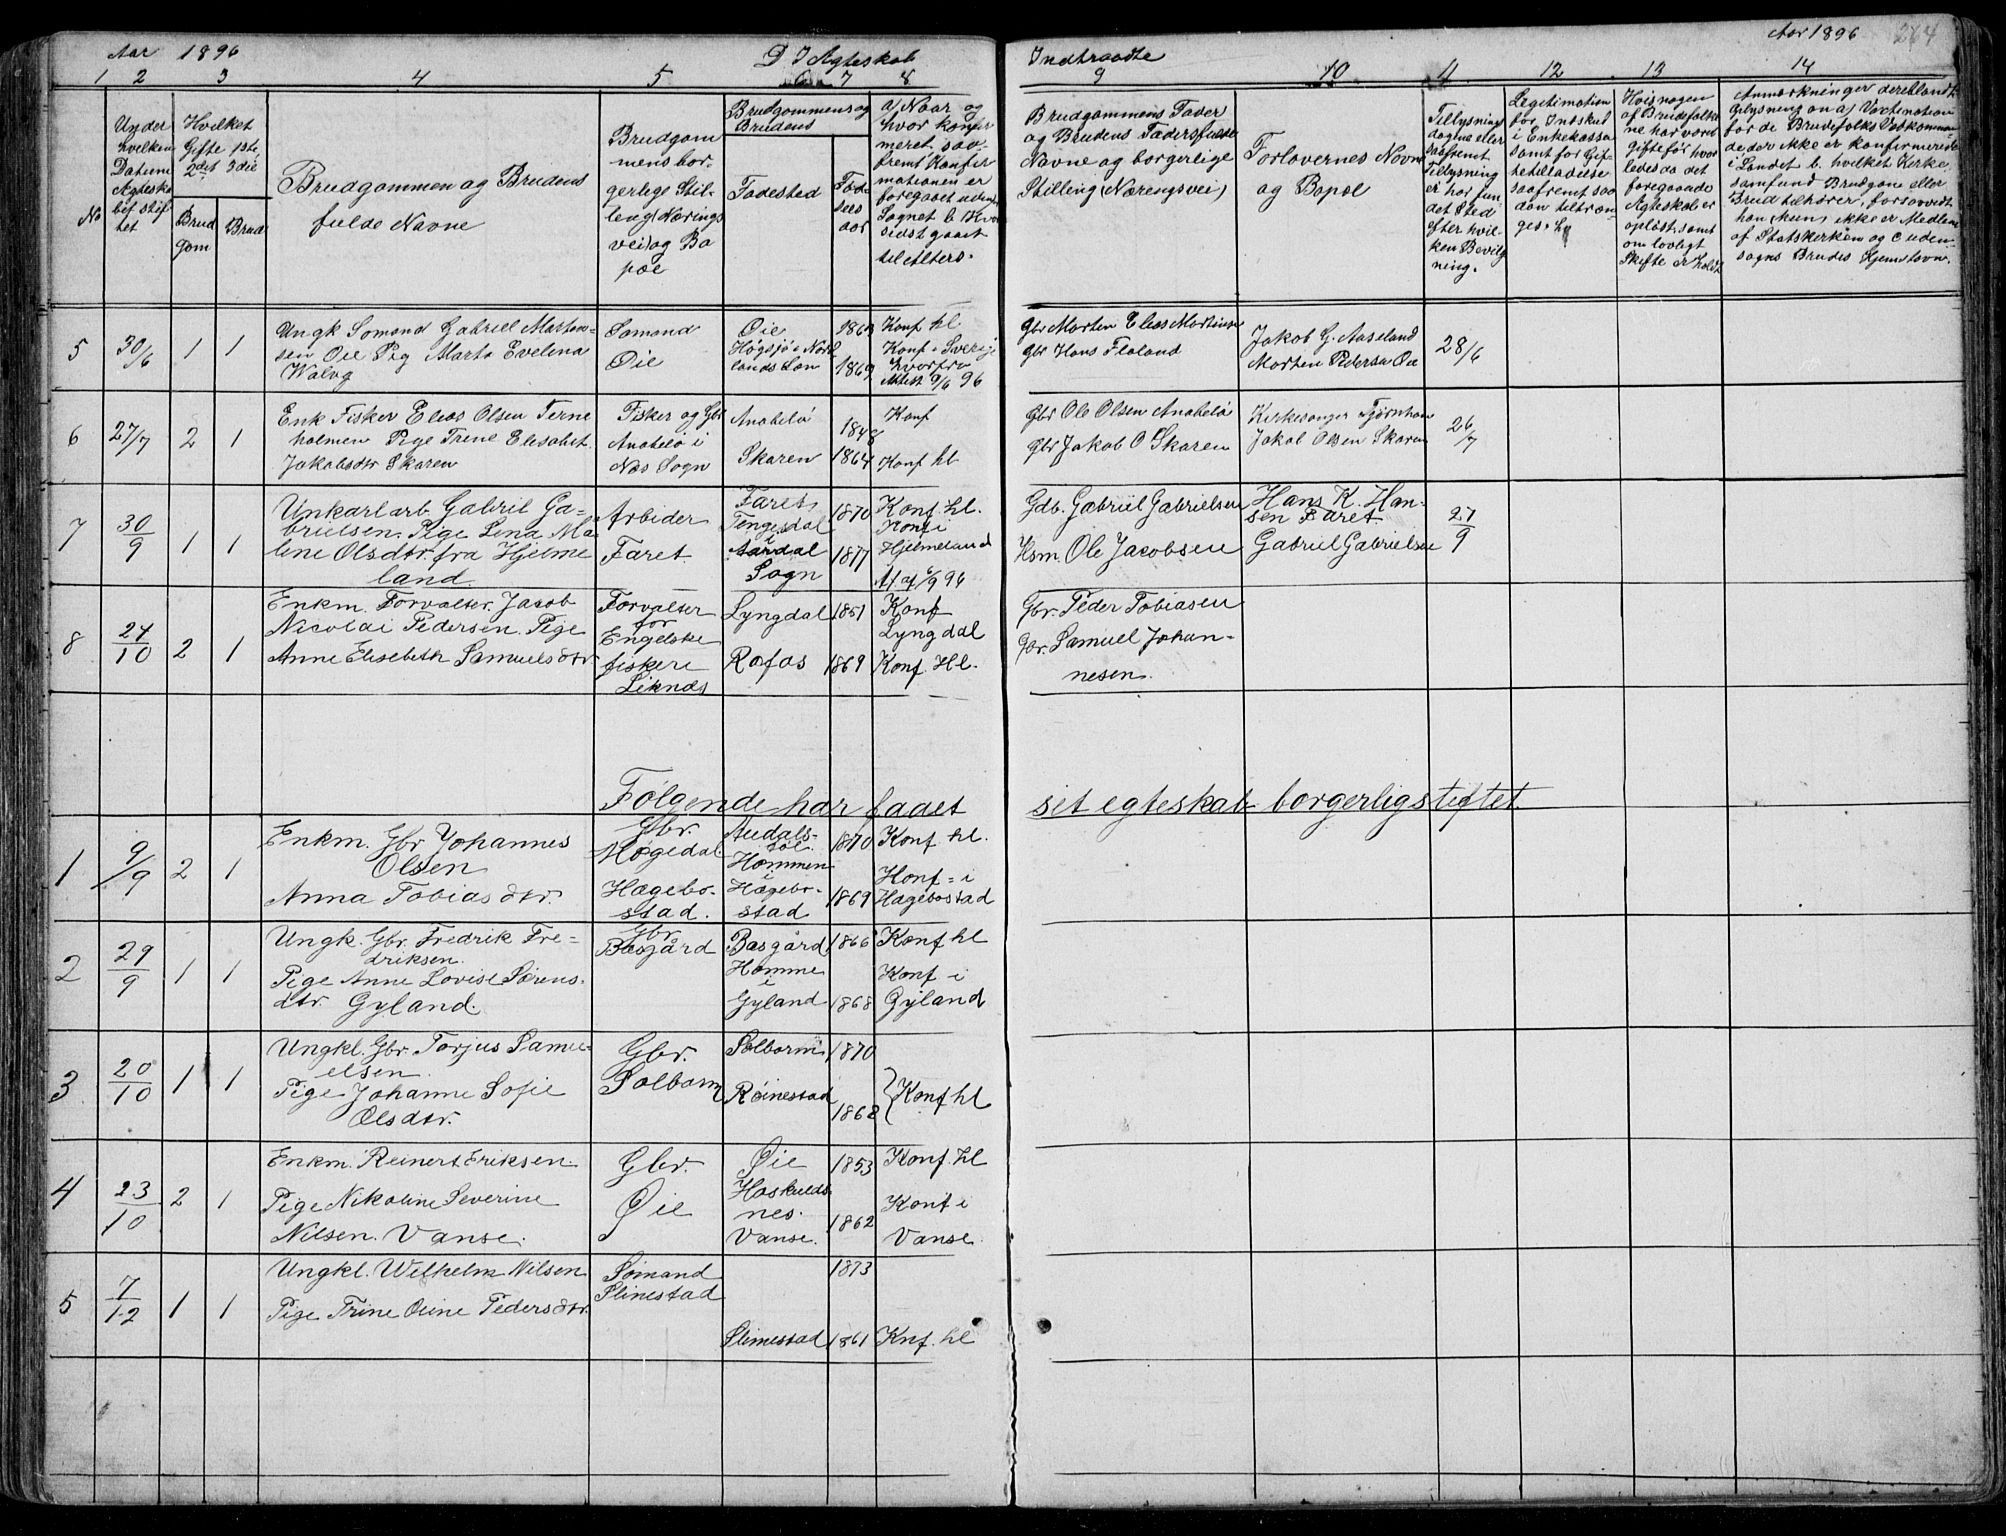 Aar 1896 D I Ægteskab Indtraadte Aar 1896 264
1 2 3 4 5 6 7 8 9 10 11 12 13 14
No
Under
hvilken
Datum
Ægteska
bet stif
tet
Hvilket
Gifte 1ste
2det 3die
Brud
gom
Brud
Brudgommen og Brudens
fulde Navne
Brudgom
mens bor
gerlege Stil-
leng (Nærings
vei) og Bo
pæl
Brudgommens og
Brudens
Fødested
Fød
sels
aar
a) Naar og
hvor konfir
meret, saa-
fremt Konfir
mationen er
foregaaet udenfor
Sognet b. Hvor
sidst gaaet
til Alters.
Brudgommens Fader
og Brudens Faders fulde
Navne og borgerlige
Stilling (Næringsvei)
Forlovernes Navne
og Bopæl
Tillysnings
dagene eller
saafremt
Tillysning
ei har fun-
det Sted
efter hvil-
ken Bevilg
ning.
Legitimation
for Indskud
i Enkekassa
samt for Gif-
tetilladelse
saafremt saa
dan tiltræn
ges.
Hvis nogen
af Brudefolke
ne har været
gift før, hvor
ledes da det
foregaaende
Ægteskab er
opløst, samt
om lovligt
Skifte er holdt
Anmærkninger deriblandt
Oplysning om a) Vaccination
for de Brudefolks Vedkomme-
de der ikke er konfirmerede
i Landet b. hvilket Kirke
samfund Brudgom eller
Brud tilhører, forsaavidt
han (hun) ikke er Medlem
af Statskirken og c uden-
sogns Brudes Hjemstavn.
5 30/6 1 1
Ungk Sømand Gabriel Marten-
sen Øie Pig Marta Evelena
Walvg
Sømand
Øie
Øie 1863
Høgsjø i Nord
lands Læn 1869
Konf hl
Konf i Sverige
hvorfra
Attest 9/6 96
Gbr Morten Elias Martinsen
Gbr Hans Floland
Jakob G. Aaseland
Morten Pedersen Øie
28/6
6 27/7 2 1
Enk Fisker Elias Olsen Terne
holmen Pige Trine Elisabet
Jakobsdtr Skaren
Fisker og Gbr
Anabelø i
Næs Sogn
Anabelø 1848
Skaren 1864
Konf
Konf hl
Gbr Ole Olsen Anabelø
Gbr Jakob O Skaren
Kirkesanger Tjørnhom
Jakob Olsen Skaren
26/7
7 30/9 1 1
Unkarl arb. Gabriel Ga-
brielsen. Pige Lena Ma
lene Olsdtr. fra Hjelme
land.
Arbider
Faret.
Faret 1870
Tengesdal
i
Aardal 1877
Sogn
Konf. hl.
Konf i
Hjelmeland
At. af 6/9 96
Gdb. Gabriel Gabrielsen
Hsm. Ole Jacobsen
Hans K. Han-
sen Faret
Gabriel Gabrielsen
27/9
8 24/10 2 1
Enkm. Forvalter. Jacob
Nicolai Pedersen. Pige
Anne Elisebeth Samuelsdtr
Forvalter
for
Engelske
fiskeri
Liknes
Lyngdal 1851
Rafos 1869
Konf
Lyngdal
Konf. Hl.
Gbr. Peder Tobiasen
Gbr. Samuel Johan-
nesen.
Følgende har faaet sit egteskab borgerlig stiftet
1 9/9 2 1
Enkm. Gbr Johannes
Olsen
Anna Tobiasdtr.
Gbr.
Møgedal
Hægebo-
stad.
Audals- 1870
Hommen
i
Hægebo- 1869
stad
Konf hl.
Konf- i
Hægebostad
2 29/9 1 1
Ungk. Gbr. Fredrik Fre-
driksen.
Pige Anne Lovise Sørens-
dtr. Gyland.
Gbr.
Bæsgård
Bæsgård 1866
Homme
i
Gyland 1868
Konf hl
Konf i
Gyland
3 20/10 1 1
Ungkl. Gbr. Torjus Samu-
elsen.
Pige Johanne Sofie
Olsdtr.
Gbr.
Solborm
Solborm 1870
Røinestad 1862
Konf hl
4 23/10 2 1
Enkm. Reinert Eriksen
Pige Nikoline Severine
Nilsen. Vanse.
Gbr.
Øie
Øie 1853
Haskulds
nes.
Vanse. 1862
Konf. hl
Konf i
Vanse.
5 7/12 1 1
Ungkl. Wilhelm Nilsen
Pige Trine Oline Pedersdtr.
Sømand
Slimestad
1873
Slimestad 1861 Knf. hl